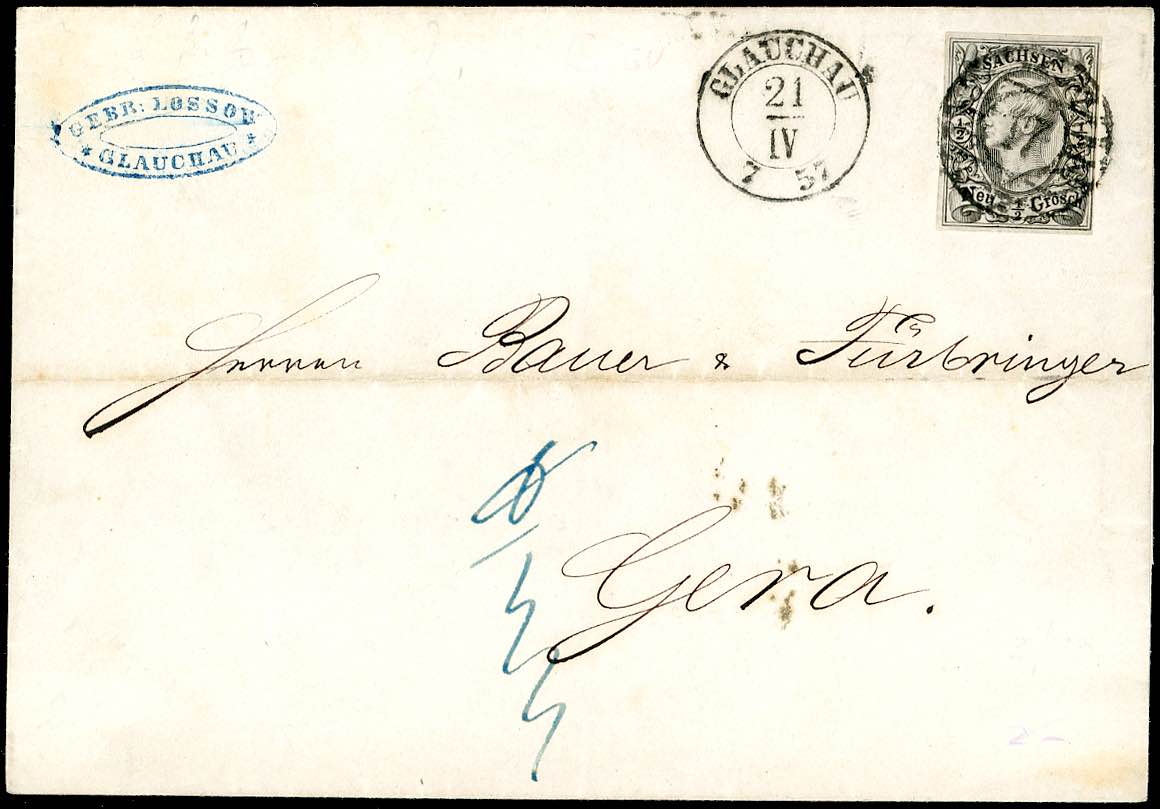 GEBR: LOSSOW
* GLAUCHAU *
GLAUCHAU
21
IV
7 57
SACHSEN
1/2
Neu 1/2 Grosch
Herren Bauer & Fürbringer
Gera.